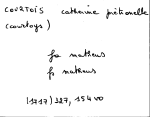 COURTOIS catherine pétronelle
(courtoys)
fa matheus
fs matheus
(1717) 327, 154 vo